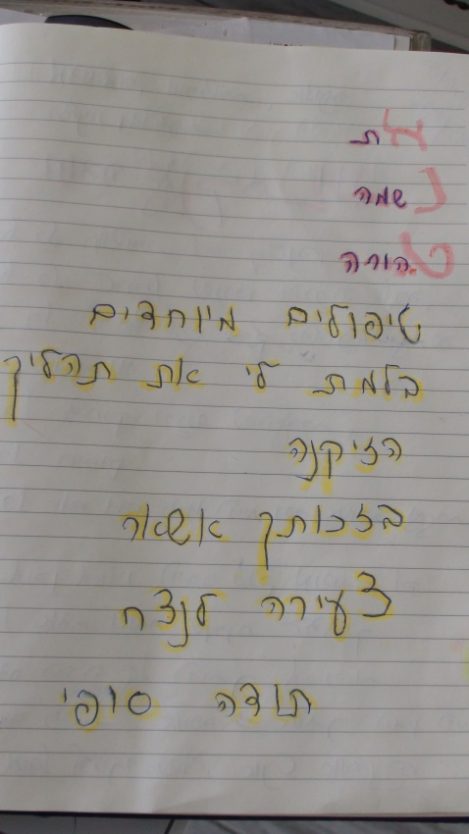 את
נשמה
טהורה
טיפולים מיוחדים
בלמת לי את תהליך
הזיקנה
בזכותך אשאר
צעירה לנצח
תודה סופי